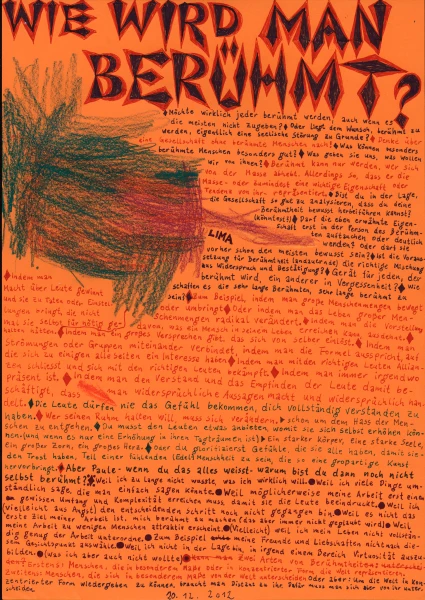 WIE WIRD MAN
BERÜHMT?
♦Möchte wirklich jeder berühmt werden, auch wenn es
die meisten nicht zugeben?♦Oder liegt dem Wunsch, berühmt zu
werden, eigentlich eine seelische Störung zu Grunde?♦Denke über
eine Gesellschaft ohne berühmte Menschen nach!♦Was können besonders
berühmte Menschen besonders gut?♦Was geben sie uns, was wollen
wir von ihnen?♦Berühmt kann nur werden, wer sich
von der Masse abhebt. Allerdings so, dass er die
Masse - oder zumindest eine wichtige Eigenschaft oder
Tendenz von ihr - repräsentiert.♦Bist du in der Lage,
die Gesellschaft so gut zu analysieren, dass du deine
Berühmtheit bewusst herbeiführen kannst?
(könntest?)♦Darf die eben erwähnte Eigen-
schaft erst in der Person des Berühm-
ten auftauchen oder deutlich
werden? Oder darf sie
LIMA
vorher schon den meisten bewusst sein?♦Ist die Voraus-
setzung für Berühmtheit (andauernde) die richtige Mischung
aus Widerspruch und Bestätigung?♦Gerät für jeden, der
berühmt wird, ein anderer in Vergessenheit?♦Wie
schaffen es die sehr lange Berühmten, sehr lange berühmt zu
sein?♦Zum Beispiel, indem man große Menschenmengen bewegt
♦Indem man
Macht über Leute gewinnt
oder umbringt♦Oder indem man das Leben großer Men-
und sie zu Taten oder Einstel-
schenmengen radikal verändert.♦Indem man die Vorstellung
lungen bringt, die nicht
was sie selbst für nötig ge-
davon, was ein Mensch in seinem Leben erreichen kann, ausdehnt.
halten hätten.♦Indem man ein großes Versprechen gibt, das sich von selber einlöst.♦Indem man
Strömungen oder Gruppen miteinander verbindet, indem man die Formel ausspricht, auf
die sich zu einigen alle selten ein Interesse haben♦Indem man mit den richtigen Leuten Allian-
zen schliesst und sich mit den richtigen Leuten bekämpft.♦Indem man immer irgendwo
präsent ist.♦Indem man den Verstand und das Empfinden der Leute damit be-
schäftigt, dass man widersprüchliche Aussagen macht und widersprüchlich han-
delt.♦Die Leute dürfen nie das Gefühl bekommen, dich vollständig verstanden zu
haben.♦Wer seinen Ruhm halten will, muss sich verändern♦schon um dem Hass der Men-
schen zu entgehen.♦Du musst den Leuten etwas anbieten, womit sie sich selbst erhöhen kön-
nen (und wenn es nur eine Erhöhung in ihren Tagträumen ist)♦Ein starker Körper, eine starke Seele,
ein großer Zorn, ein großes Herz♦Oder du glorifizierst Gefühle, die sie alle haben, damit sie
den Trost haben, Teil einer leidenden (edel) Menschheit zu sein, die so eine großartige Kunst
hervorbringt.♦Aber Paule - wenn du das alles weisst - warum bist du dann noch nicht
selbst berühmt??♦Weil ich zu lange nicht wusste, was ich wirklich will.●Weil ich viele Dinge um-
ständlich sage, die man einfach sagen könnte.●Weil möglicherweise meine Arbeit erst einen
gewissen Umfang und Komplexität erreichen muss, damit sie die Leute beeindruckt.●Weil ich
(vielleicht aus Angst) den entscheidenden Schritt noch nicht gegangen bin.●Weil es nicht das
erste Ziel meiner Arbeit ist, mich berühmt zu machen (das aber immer nicht geglaubt wird)●Weil
meine Arbeit zu wenigen Menschen attraktiv erscheint.●(Vielleicht) weil ich mein Leben nicht vollstän-
dig genug der Arbeit unterordne.●Zum Beispiel meine Freunde und Liebschaften nicht nach die-
sem Gesichtspunkt auswähle.●Weil ich nicht in der Lage bin, in irgend einem Bereich Virtuosität auszu-
bilden.●(was ich aber auch nicht wollte)
Erstens: Menschen, die in besonderem Maße oder in konzentrierter Form
Zweitens: Menschen, die sich in besonderem Maße von der Welt unterscheiden Oder aber: Um die Welt in kon-
zentrierter Form wiedergeben zu können, braucht man Distanz zu ihr. Dafür muss man sich aber von ihr unter-
scheiden.
20.12.2012